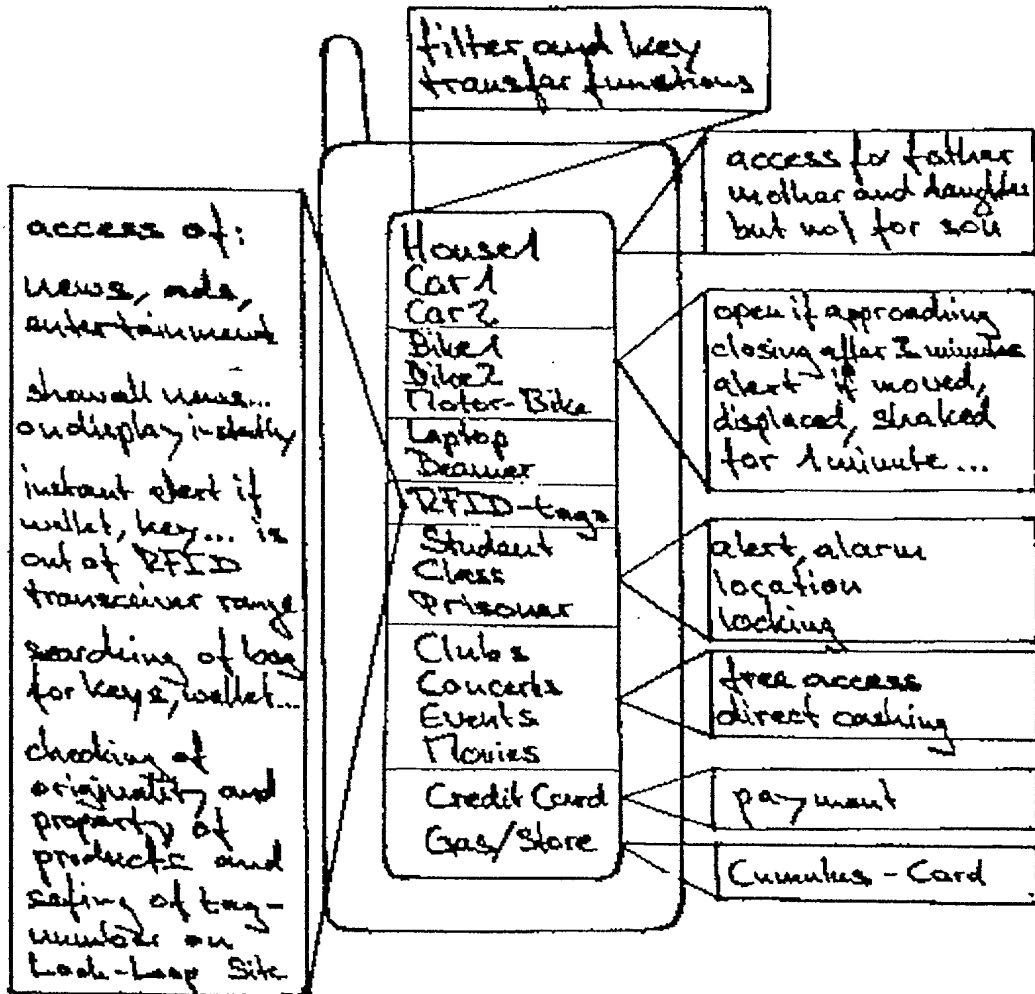 filter and key
transfer functions
access for father
mother and daughter
but not for son
access of:
news, ads,
entertainment
show all news...
on display instantly
instant alert if
wallet, key... is
out of RFID
transceiver range
searching of bag
for keys, wallet...
checking of
originality and
property of
products and
safing of tag-
number on
Site
House1
Car1
Car2
Bike1
Bike2
Motor-Bike
Laptop
Beamer
RFID-tags
Student
Class
Prisoner
Clubs
Concerts
Events
Movies
Credit Card
Gas/Store
open if approaching
closing after minutes
alert if moved,
displaced, shaked
for 1 minute...
alert, alarm
location
locking
free access
direct cashing
payment
Cumulus-Card